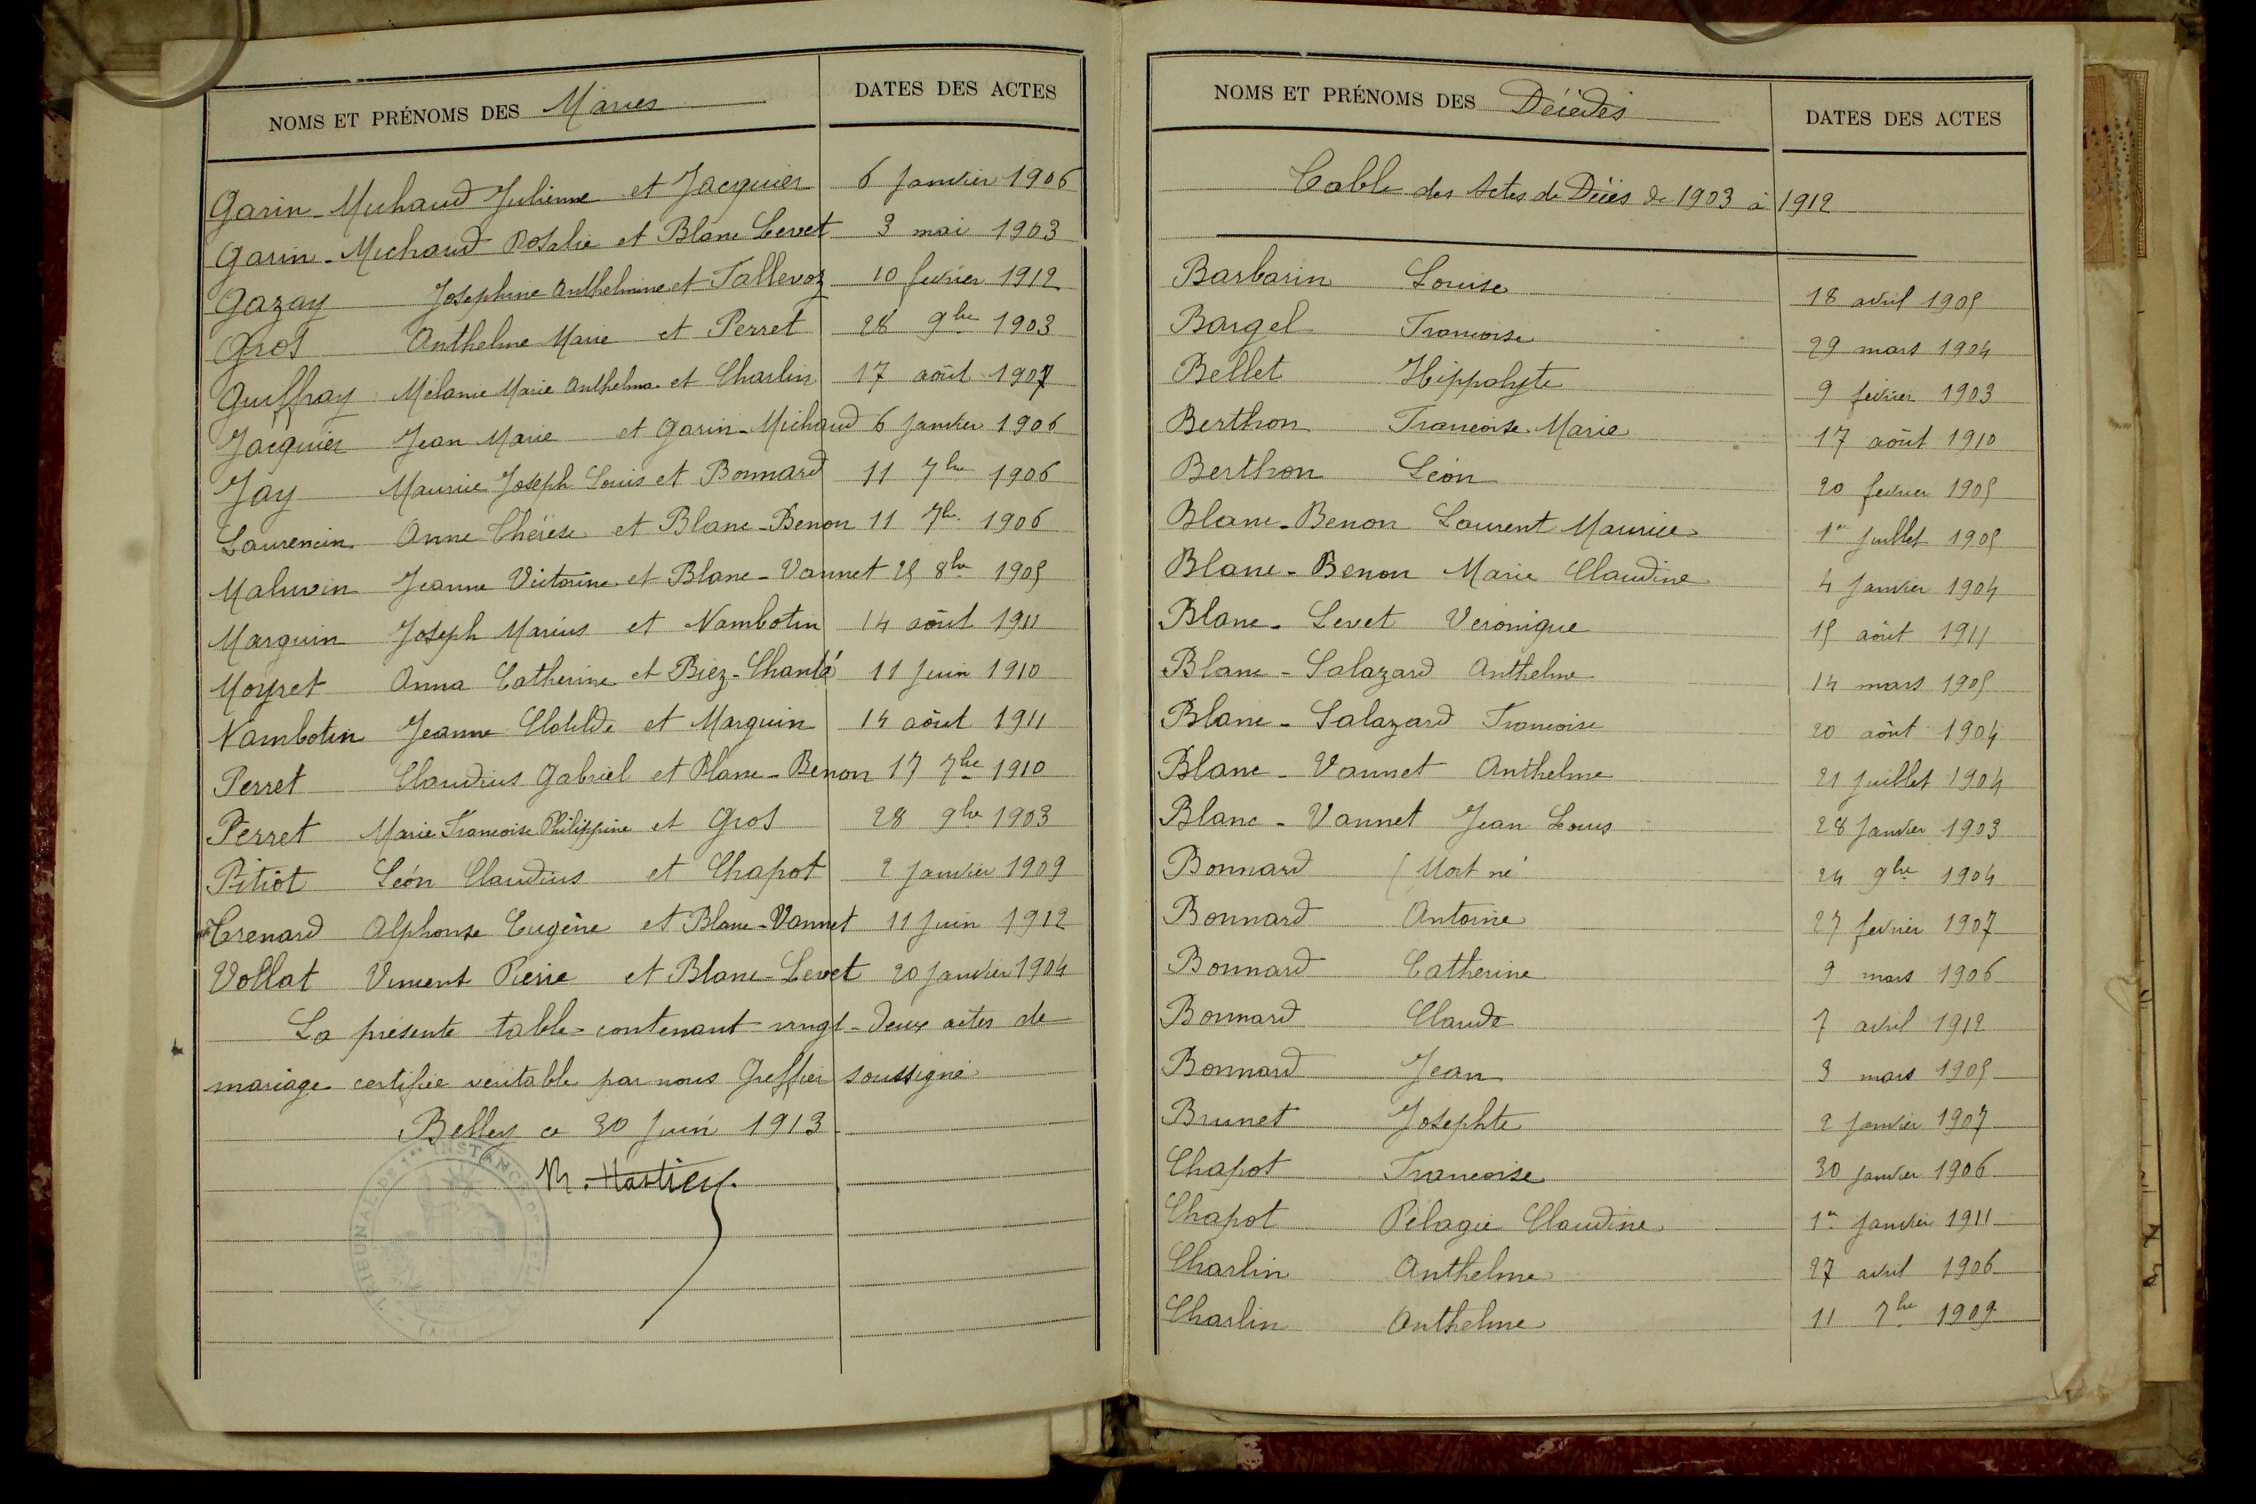 NOMS ET PRÉNOMS DES Mariés DATES DES ACTES
Garin-Michaud Julienne et Jacquier 6 Janvier 1906
Garin-Michaud Rosalie et Blanc Levet 3 mai 1903
Gazay Josephine Anthelmine et Tallevoz 10 fevrier 1912
Gros Anthelme Marie et Perret 28 9bre 1903
Guiffray Mélanie Marie Anthelma et Charlin 17 août 1907
Jacquier Jean Marie et Garin-Michaud 6 Janvier 1906
Jay Maurice Joseph Louis et Bonnard 11 7bre 1906
Laurencin Anne Thérèse et Blanc-Benon 11 7b. 1906
Maluvin Jeanne Victorine et Blanc-Vannet 25 8bre 1905
Marguin Joseph Marius et Nambotin 14 août 1911
Moyret Anna Catherine et Biez-Chanté 11 Juin 1910
Nambotin Jeanne Clotilde et Marguin 14 août 1911
Perret Claudius Gabriel et Blanc-Benon 17 7bre 1910
Perret Marie Francoise Philippine et Gros 28 9bre 1903
Pitiot Léon Claudius et Chapot 2 Janvier 1909
Trenard Alphonse Eugène et Blanc-Vannet 11 Juin 1912
Vollat Vincent Pierre et Blanc-Levet 20 Janvier 1904
La présente table contenant vingt-deux actes de
mariage certifiée véritable par nous Greffier soussigné
Belley ce 30 Juin 1913
TRIBUNAL DE 1re INSTANCE
NOMS ET PRÉNOMS DES Décédés DATES DES ACTES
Table des Actes de Décès de 1903 à 1912
Barbarin Louise 18 avril 1905
Bargel Francoise 29 mars 1904
Bellet Hippolyte 9 février 1903
Berthon Francoise Marie 17 août 1910
Berthon Léon 20 fevrier 1905
Blanc-Benon Laurent Maurice 1er Juillet 1905
Blanc-Benon Marie Claudine 4 Janvier 1904
Blanc-Levet Veronique 15 août 1911
Blanc-Salazard Anthelme 14 mars 1905
Blanc-Salazard Francoise 20 août 1904
Blanc-Vannet Anthelme 21 Juillet 1904
Blanc-Vannet Jean Louis 28 Janvier 1903
Bonnard (Mort né 24 9bre 1904
Bonnard Antoine 27 fevrier 1907
Bonnard Catherine 9 mars 1906
Bonnard Claude 7 avril 1912
Bonnard Jean 3 mars 1905
Brunet Josephte 2 Janvier 1907
Chapot Francoise 30 Janvier 1906
Chapot Pélagie Claudine 1er Janvier 1911
Charlin Anthelme 27 avril 1906
Charlin Anthelme 11 7bre 1909